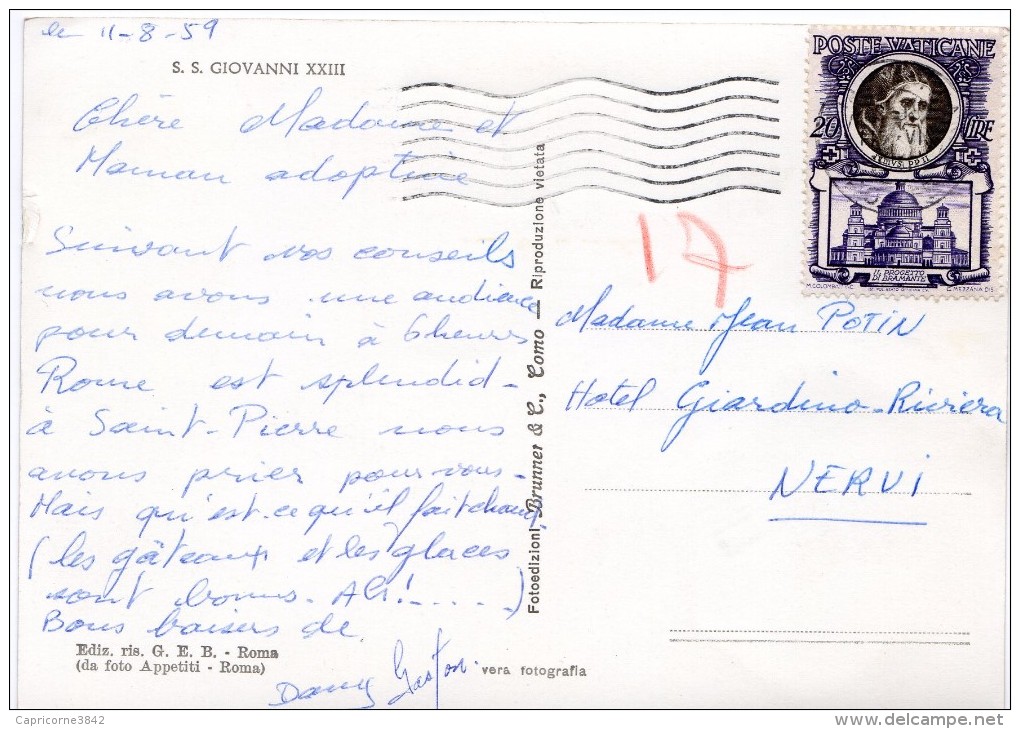 le 11-8-59
S. S. GIOVANNI XXIII
Chère Madame et
Maman adoptive
Suivant vos conseils
nous avons une audience
pour demain à 6 heures
Rome est splendid-
à Saint-Pierre nous
avons prier pour vous-
Mais qu'est-ce qu'il fait chaud
(les gâteaux et les glaces
sont bonnes. Ah!.....)
Bons baisers de
Dany Gaston
Ediz. ris. G. E. B. - Roma
(da foto Appetiti - Roma)
vera fotografia
Fotoedizioni Brunner & C., Como — Riproduzione vietata
17
POSTE VATICANE
20 LIRE
IVLIVS. PP. II
IL PROGETTO
DI BRAMANTE
M. COLOMBATI INC.
E. MEZZANA DIS.
Madame Jean POTIN
Hotel Giardino-Riviera
NERVI
Capricorne3842
delcampe.net